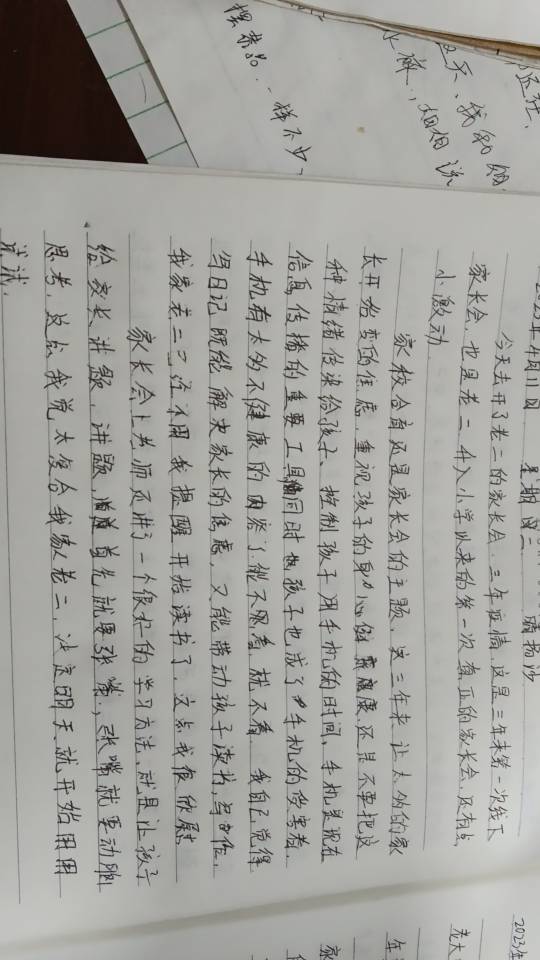 2023年4月11日 星期二 晴 扬沙
今天去开了老二的家长会,三年疫情,这是三年来第一次线下
家长会,也是老二升入小学以来的第一次真正的家长会,还有点
小激动.
家校合育还是家长会的主题,这三年来让太多的家
长开始变的焦虑,重视孩子的身心健康,还是不要把这
种情绪传染给孩子、控制孩子用手机的时间,手机是现在
信息传播的重要工具,同时也孩子也成了手机的受害者.
手机有太多不健康的内容了,能不看就不看.我自己觉得
写日记既能解决家长的焦虑,又能带动孩子读书,写作,
我家老二已经不用我提醒开始读书了,这点我很欣慰
家长会上老师还讲了一个很好的学习方法,就是让孩子
给家长讲题,讲题,首先就要张嘴,张嘴就要动脑
思考,这点我觉太适合我家老二,决定明天就开始用用
试试.
摆菜品..一样不少、
2023年
老大
年
家